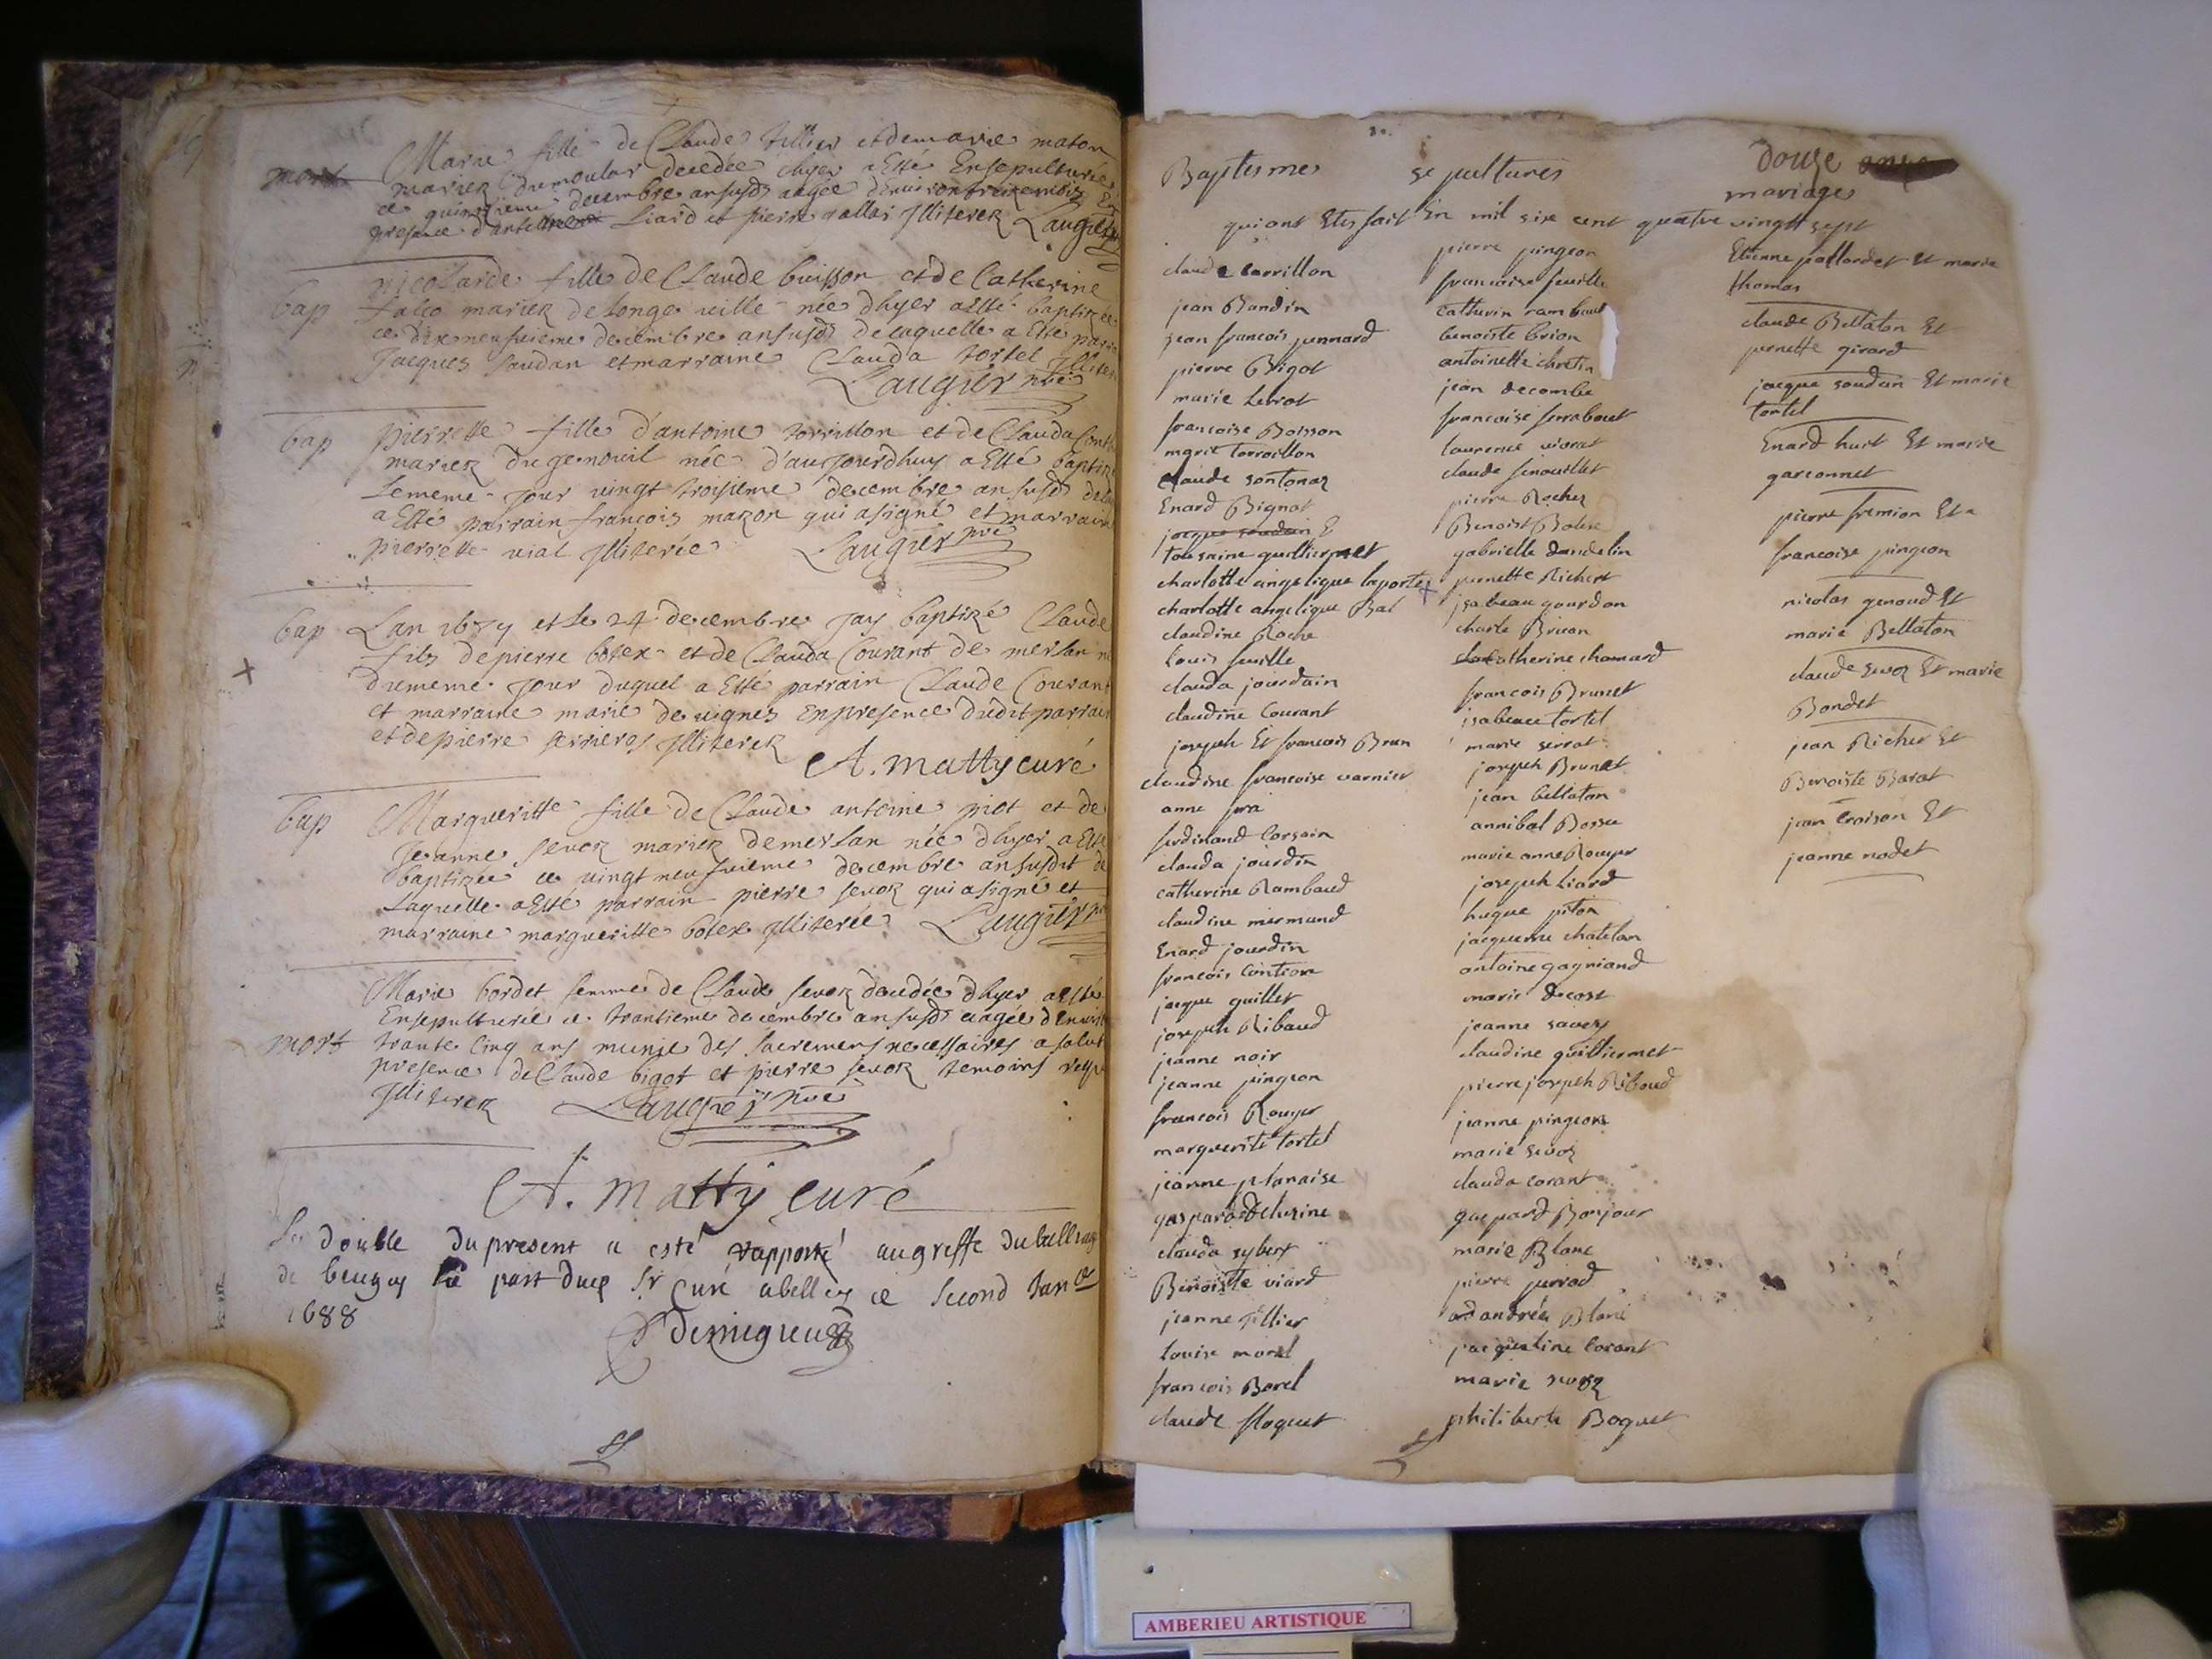 mort
Marie fille de Claude tillier et de marie maton
mariez du moular decedée dhyer a Esté Ensepulturée
ce quinzieme decembre an susd aagée denviron treize mois En
presence d'anthelme Liard et pierre vallat Illiterez Laugier
bap
nicolarde fille de Claude buisson et de Catherine
falco mariez de longe ville née dhyer a Esté baptizée
ce dix neufvieme decembre an susd de laquelle a Esté parra
Jacques saudan et marraine Clauda tortel Illiter
Laugier pbre
bap
pierrette fille d'antoine torrillon et de Clauda Cont
mariez du genouil née d'aujourdhuy a Esté baptiz
le meme jour vingt troisieme decembre an susd de la
a Esté parrain françois mazon qui a signé et marraine
pierrette vial Illiterée Laugier pbre
bap
Lan 1687 et le 24 decembre jay baptizé Claude
fils de pierre botex et de Clauda Courant de merlan né
du meme jour duquel a Esté parrain Claude Courant
et marraine marie de vignes En presence dudit parrain
et de pierre Illiterez
A. matty curé
bap
Margueritte fille de Claude antoine piot et de
Jeanne sevoz mariez de merlan née dhyer a Esté
baptizée ce vingt neufvieme decembre an susdit de
Laquelle a Esté parrain pierre sevoz qui a signé et
marraine margueritte botex Illiterée Laugier pbre
mort
Marie bordet femme de Claude sevoz decedée dhyer a Esté
Ensepulturée ce trantieme decembre an susd aagée denviro
trante Cinq ans munie des sacremens necessaires a salut
presence de Claude bigot et pierre sevoz temoins requi
Illiterez Laugier pbre
A. matty curé
Le double du present a esté rapporté au greffe du balliage
de beugey de part dud Sr curé a belley ce second Janer
1688
Demigieu
douze onze
Baptismes sepultures mariages
qui ont Etes fait En mil sixe cent quatre vingtt sept
claude torrillon
jean Bondin
jean francois pennard
pierre Bigot
marie Lebrot
francoise Boisson
marie torraillon
claude sontonaz
Enard Bignot
jacque soudan E
tousaine guilliermet
charlotte angelique laporte
charlotte angelique Bal
claudine Roche
Louis feuille
clauda jourdain
claudine Courant
joseph Et francois Brun
claudine francoise varnier
anne pra
ferdinand Corsain
clauda jourdin
catherine Rambaud
claudine mermand
Enard jourdin
francois Contion
jacque guillet
joseph Ribaud
jeanne noir
jeanne pingeon
francois Rouyer
marguerite tortel
jeanne planaise
gaspard deluzine
clauda sybert
Benoiste viard
jeanne tillier
Louise morel
francois Borel
claude floquet
pierre pingeon
francoise feuille
catherin rambaud
benoiste brion
antoinette chretin
jean decombe
francoise ferrabout
laurence viorat
claude fenouillet
pierre Rochez
Benoist
gabrielle dandelin
pernette Richert
jsabeau gourdon
charle Bricon
catherine chamard
francois Brunet
isabeau tortel
marie serrat
joseph Brunet
jean bellaton
annibal Bossu
marie anne Rouyer
joseph Liard
hugue piton
jacqueme chatelan
antoine gagniand
marie decost
jeanne savey
claudine guilliermet
pierre joseph Riboud
jeanne pingeon
marie sevoz
clauda corant
gaspard Bonjour
marie Blanc
pierre perrod
andrée Blanc
jacqueline Corant
marie sevoz
philiberte Boguet
Etienne pallordet Et marie
thomas
claude Bellaton Et
pernette girard
jacque soudan Et marie
tortel
Enard huit Et marie
garconnet
pierre fremion Et
francoise pingeon
nicolas genoud Et
marie Bellaton
claude sevoz Et marie
Bondet
jean Richer Et
Benoiste Barat
jean Croison Et
jeanne nodet
AMBERIEU ARTISTIQUE